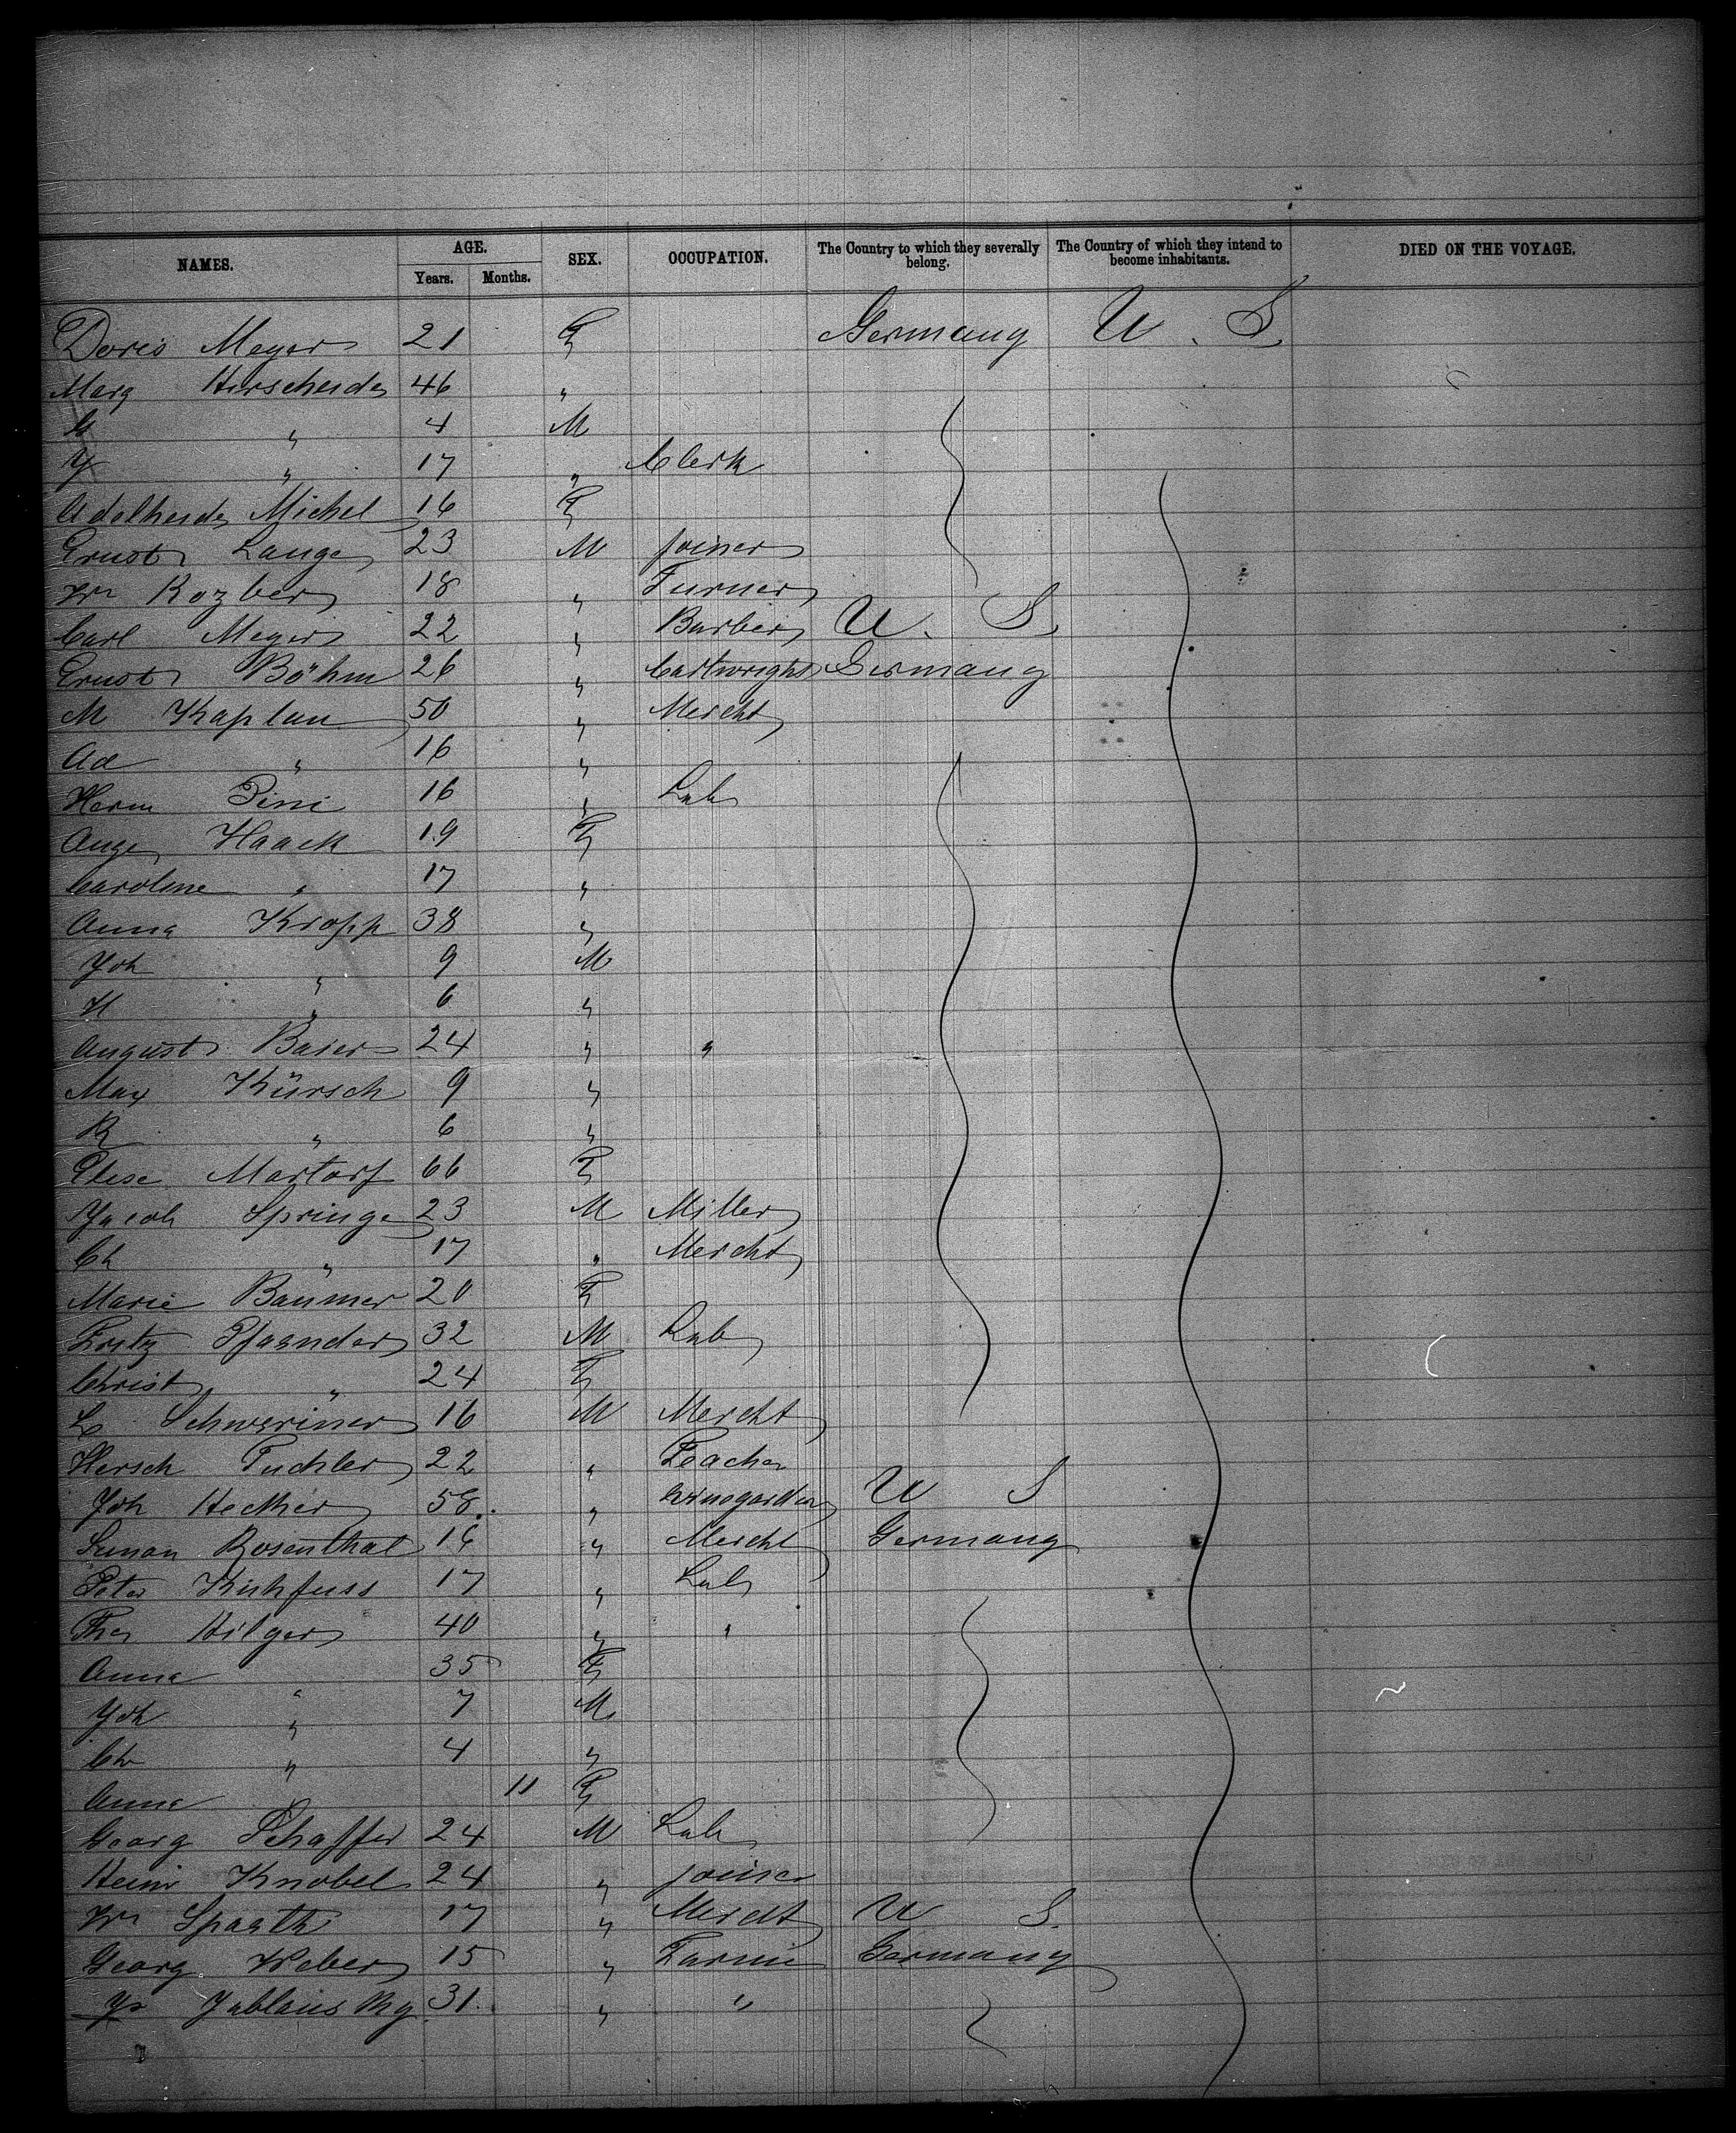 NAMES. AGE. Years. Months. SEX. OCCUPATION. The Country to which they severally belong. The Country of which they intend to become inhabitants. DIED ON THE VOYAGE.
Doris Meyer 21 F Germany U. S.
Marg 46 "
" 4 M
" 17 " Clerk
Adelheid Michel 16 F
Ernst Lange 23 M Joiner
Wm 18 " Turner
Carl Meyer 22 " Barber U. S.
Ernst Böhm 26 " Cartwright Germany
M Kaplan 50 " Mercht
Ad " 16 "
Herm Pini 16 " Lab
Auge Haack 19 F
Caroline " 17 "
Anna Kropp 38 "
Joh " 9 M
H " 6 "
August Baier 24 " "
Max Kürsch 9 "
R " 6 "
Elise Martorf 66 F
Jacob Springe 23 M Miller
Ch " 17 " Mercht
Marie Baumer 20 F
Fritz Pfaender 32 M Lab
Christ " 24 F
L Schweriner 16 M Mercht
Hersch Tuchler 22 " Teacher
Joh Hecker 58 " U S
Rosenthal " Mercht Germany
Peter Kirhfuss 17 " Lab
Hilger 40 " "
Anna " 35 F
Joh " 7 M
Ch " 4 "
Anna 11 F
Georg Schaffer 24 M Lab
Heinr Knobel 24 " Joiner
Wm Spaeth 17 " Mercht U S.
Georg Weber 15 " Farmer Germany
Jablansky 31 " "